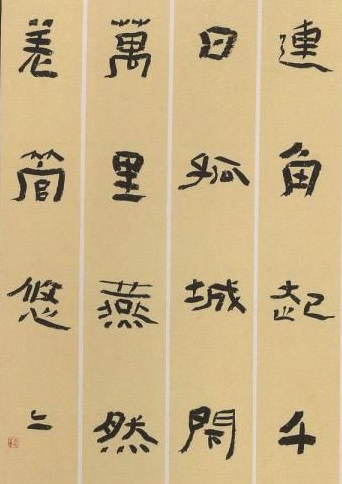 連角起千
日孤城閇
萬里燕然
羌管悠〻